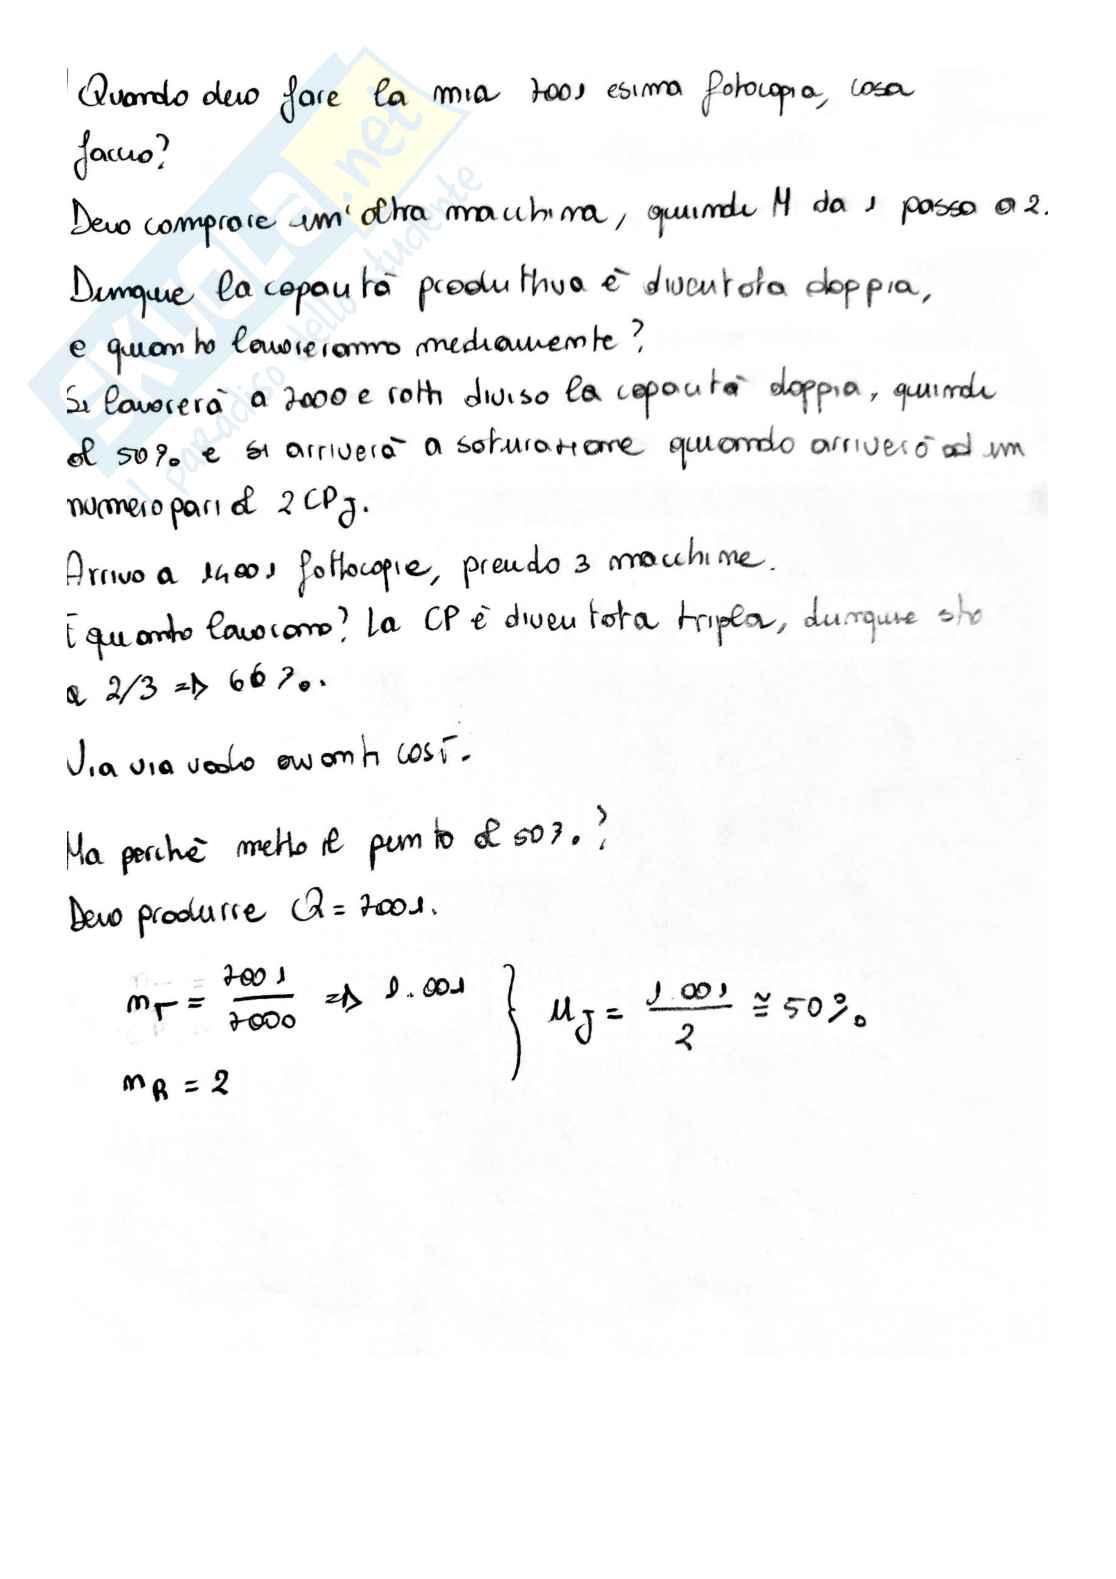 Quando devo fare la mia 7001 esima fotocopia, cosa
faccio?
Devo comprare un'altra macchina, quindi M da 1 passo a 2.
Dunque la capacità produttiva è diventata doppia,
e quanto lavoreranno mediamente?
Si lavorerà a 7000 e rotti diviso la capacità doppia, quindi
al 50% e si arriverà a saturazione quando arriverò ad un
numero pari al 2 CPj.
Arrivo a 14001 fotocopie, prendo 3 macchine.
E quanto lavorano? La CP è diventata tripla, dunque sto
a 2/3 => 66%.
Via via vado avanti così.
Ma perché metto il punto al 50%?
Devo produrre Q = 7001.
mT = 7001 / 7000 => 1.001 } μJ = 1.001 / 2 ≅ 50%
mR = 2
SKUOLA.net
il paradiso dello studente